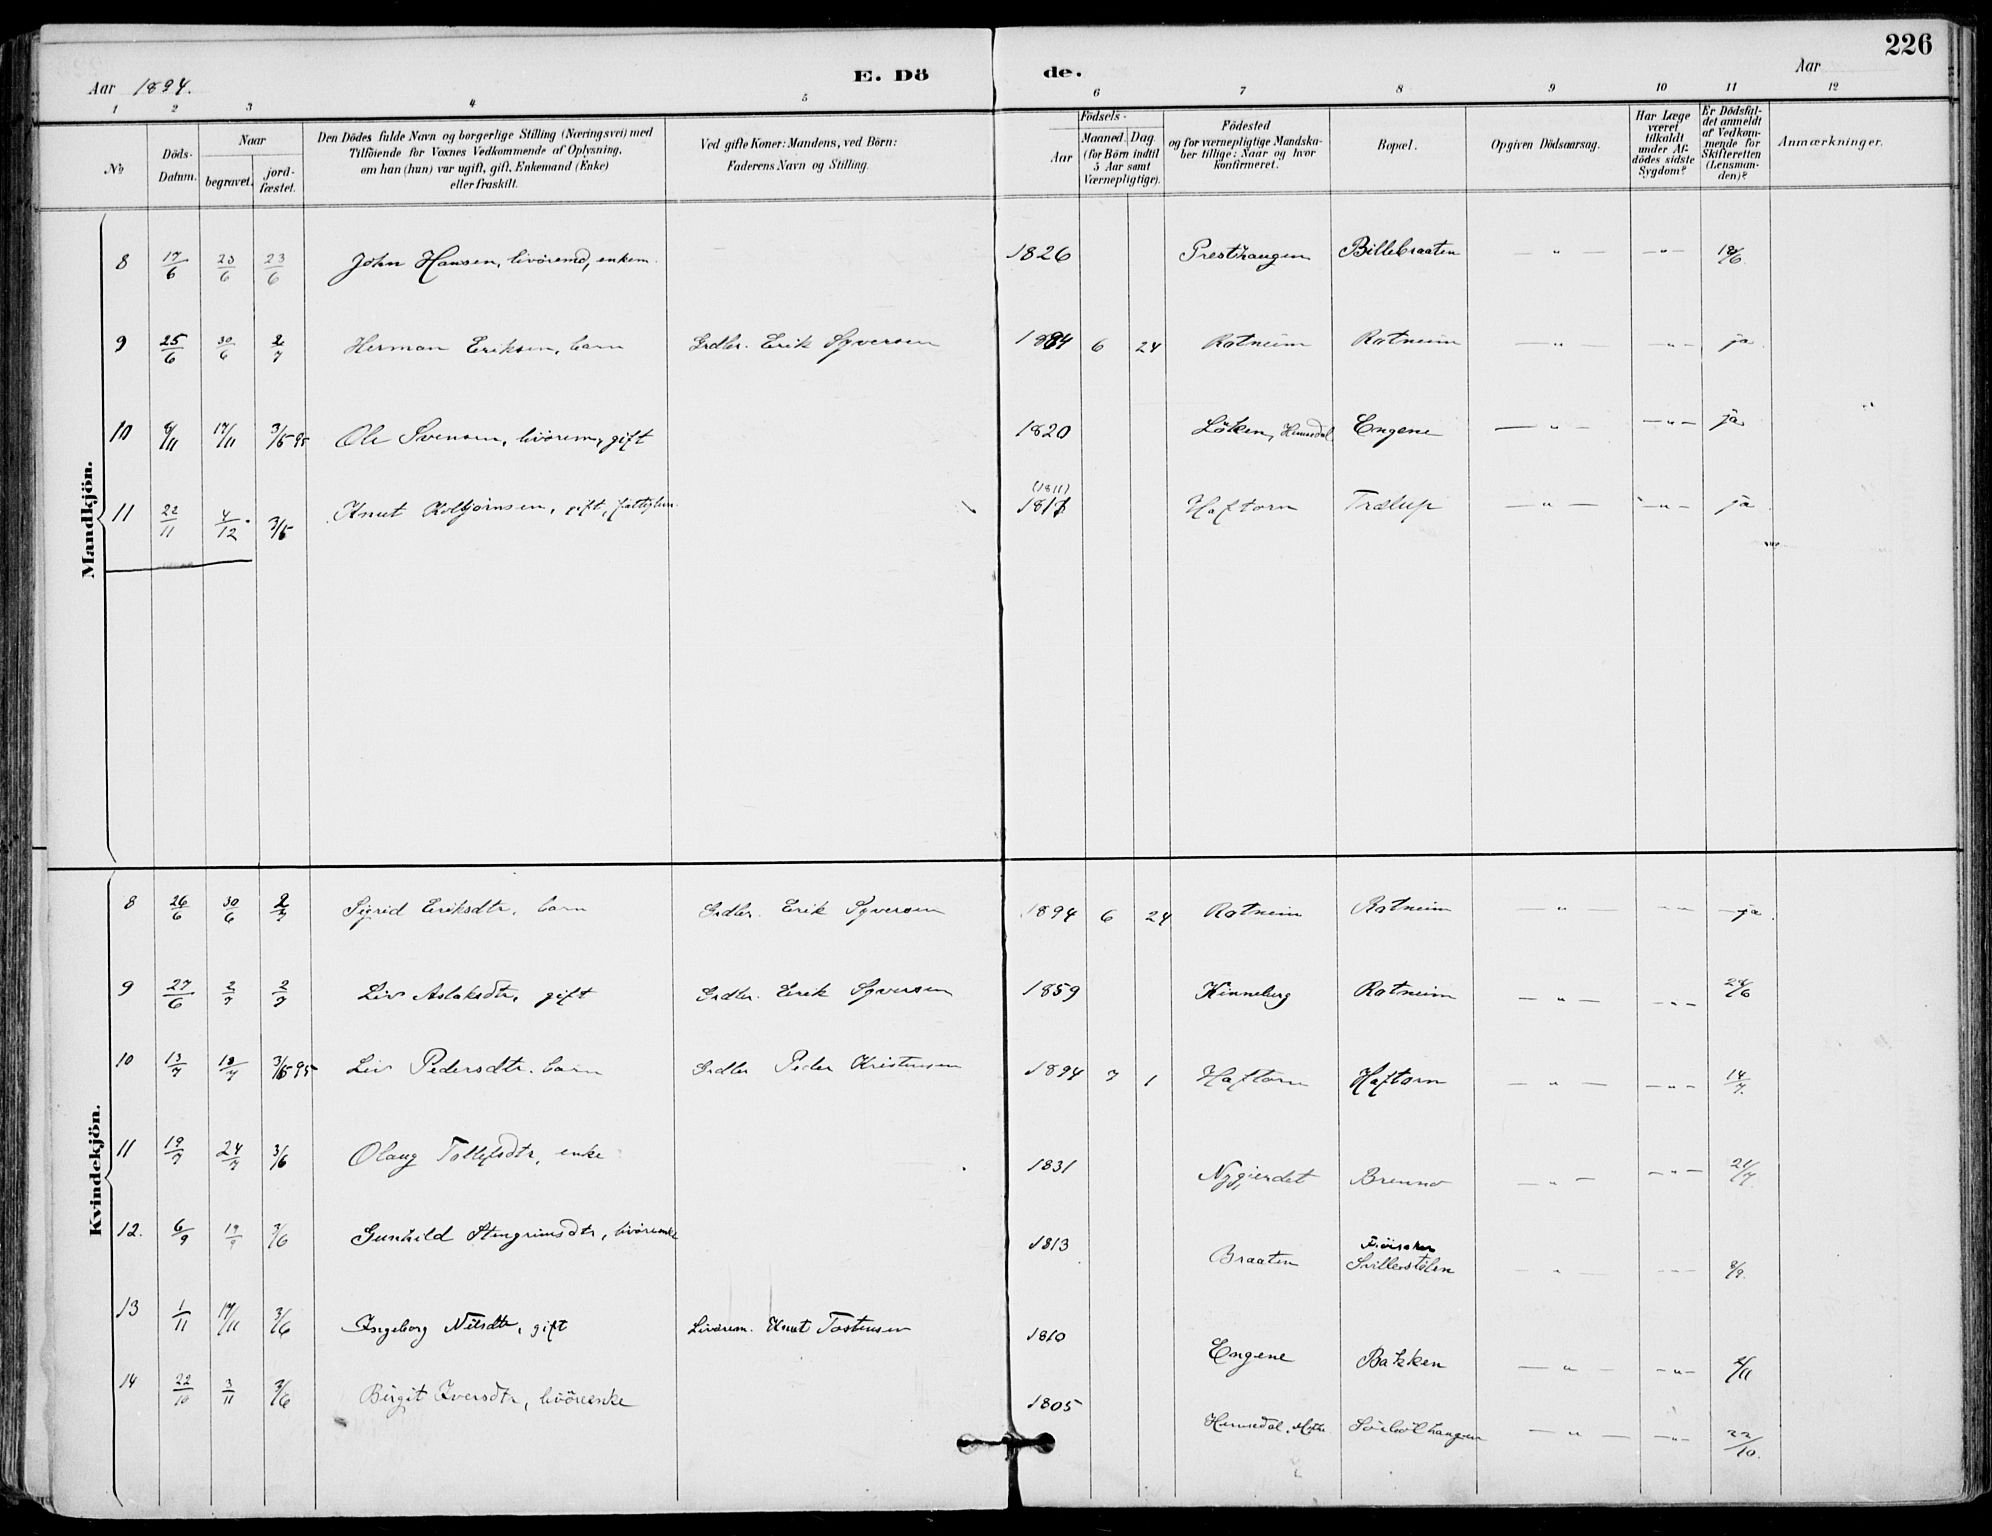 226
Aar 1894.
E. Dö
de.
Aar
1 2 3 4 5 6 7 8 9 10 11 12
No
Döds-Datum.
Naar
begravet.
jord-fæstet.
Den Dödes fulde Navn og borgerlige Stilling (Næringsvei) med
Tilföiende for Voxnes Vedkommende af Oplysning,
om han (hun) var ugift, gift, Enkemand (Enke)
eller fraskilt.
Ved gifte Koner: Mandens, ved Börn:
Faderens Navn og Stilling.
Födsels-
Aar
Maaned. Dag.
(for Börn indtil
5 Aar samt
Værnepligtige).
Födested
og for værnepligtige Mandska-
ber tillige: Naar og hvor
konfirmeret.
Bopæl.
Opgiven Dödsaarsag.
Har Læge
været
tilkaldt
under Af-
dödes sidste
Sygdom?
Er Dödsfal-
det anmeldt
af Vedkom-
mende for
Skifteretten
(Lensman-
den)?
Anmærkninger.
Mandkjön.
8 17/6 23/6 23/6 John Hansen, livöremd, enkem. 1826 Presthaugen Billebraaten — " — — " — 18/6
9 25/6 30/6 2/7 Herman Eriksen, barn Grdbr. Erik Syversen 1894 6 24 Rotneim Rotneim — " — — " — ja.
10 8/11 17/11 3/6 95 Ole Svensen, livörem, gift 1820 Löken, Hemsedal Engene — " — — " — ja
11 22/11 4/12 3/6 Knut Kolbjörnsen, gift, fattiglem. (1811) 1811 Haftorn Trælup — " — — " — ja
Kvindekjön.
8 26/6 30/6 2/7 Sigrid Eriksdtr. barn Grdbr. Erik Syversen 1894 6 24 Rotneim Rotneim — " — — " — ja.
9 27/6 2/7 2/7 Liv Aslaksdtr, gift Grdbr. Erik Syversen 1859 Kinneberg Rotneim — " — — " — 28/6
10 13/7 18/7 3/6 95 Liv Pedersdtr. barn Grdbr Peder Kristensen 1894 7 1 Haftorn Haftorn — " — — " — 14/7.
11 19/7 24/7 3/6 Olaug Tollefsdtr, enke 1831 Nygjerdet Brenno — " — — " — 21/7.
12. 6/9 19/9 3/6 Gunhild Stengrimsdtr, livörenke 1813 Braaten Svillerstölen — " — — " — 8/9.
13 1/11 17/11 3/6 Ingeborg Nilsdtr, gift Livörem. Knut Tostensen 1810 Engene Bakken — " — — " — 2/11
14 22/10 3/11 3/6 Birgit Iversdtr, livörenke 1805 Hemsedal, Söiböthaugen — " — — " — 22/10.